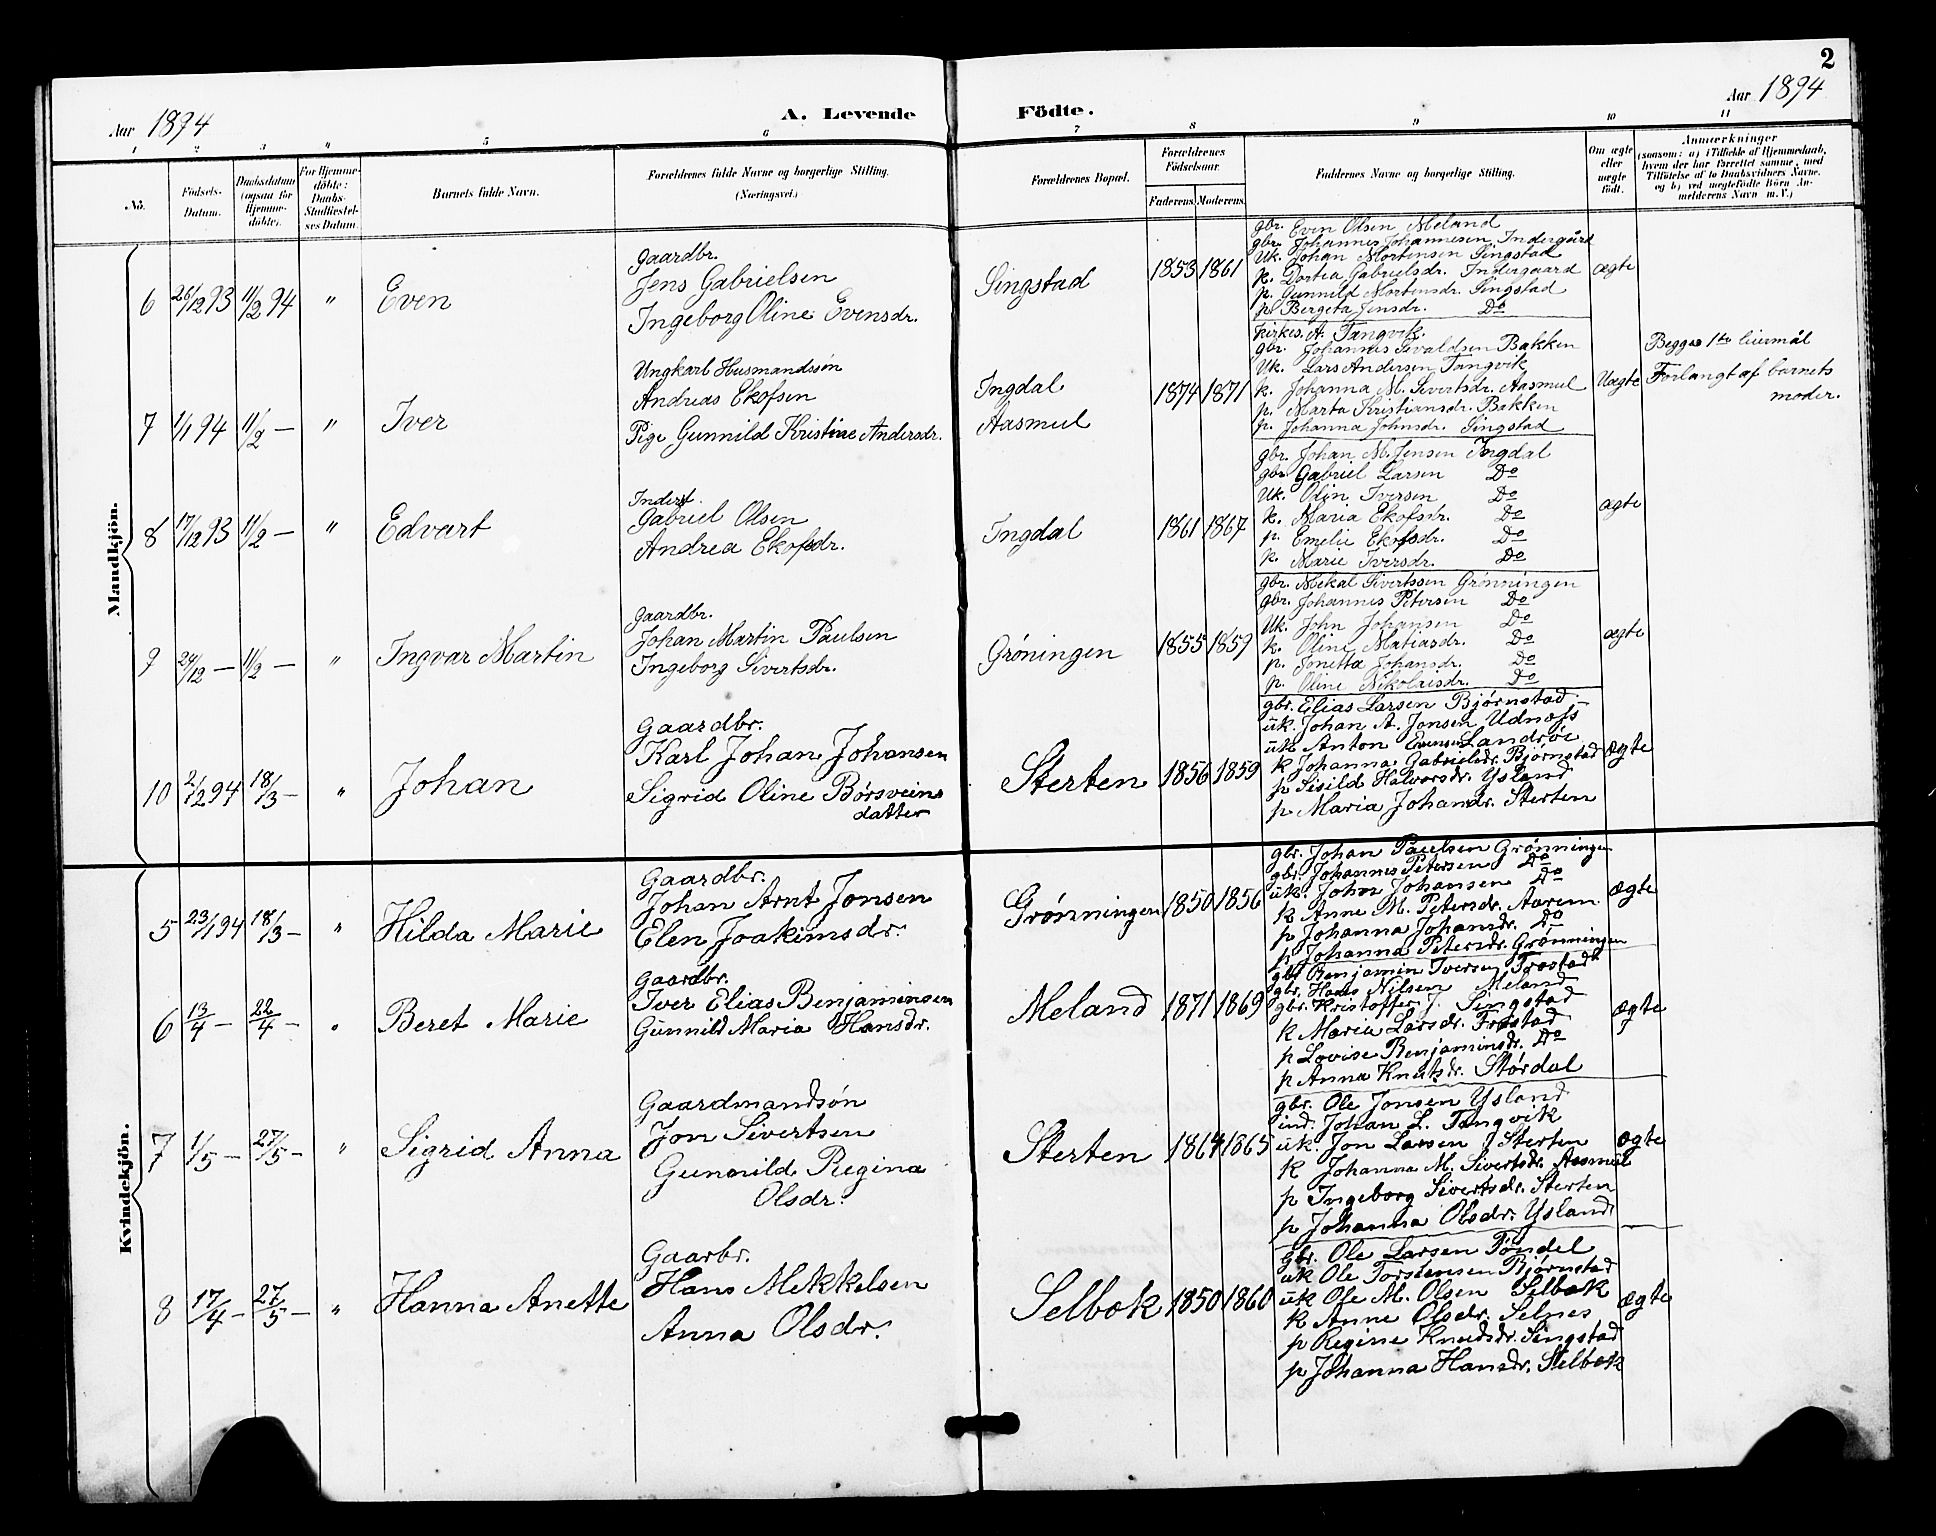 2
Aar 1894
A. Levende Födte.
Aar 1894
1 2 3 4 5 6 7 8 9 10 11
No.
Födsels-Datum.
Daabsdatum (ogsaa for Hjemme-döbte).
For Hjemme-döbte: Daabs-Stadfæstel-ses Datum.
Barnets fulde Navn.
Forældrenes fulde Navne og borgerlige Stilling. (Næringsvei.)
Forældrenes Bopæl.
Forældrenes Födselsaar.
Faderens. Moderens.
Faddernes Navne og borgerlige Stilling.
Om ægte eller uægte födt.
Anmærkninger
(saasom: a) i Tilfælde af Hjemmedaab,
hvem der har forrettet samme, med
Tilföielse af to Daabsvidners Navne.
og b) ved uægtefödte Börn An-
melderens Navn m. V.)
Mandkjön.
6 26/12 93 11/2 94 " Even
Gaardbr.
Jens Gabrielsen
Ingeborg Oline Evensdr.
Singstad 1853 1861
gbr. Even Olsen Meland
gbr. Johannes Johannesen Indergård
Uk. Johan Mortensen Singstad
k. Dortea Gabrielsdr. Indergaard
p. Gunnild Mortensdr. Singstad
p. Bergeta Jensdr. Do
ægte
7 1/1 94 11/2 — " Iver
Ungkarl Husmandssøn
Andreas Ekofsen
Pige Gunnild Kristine Andersdr.
Ingdal
Aasmul
1874 1871
Kirkes. A. Tangvik.
gbr. Johannes Sivaldsen Bakken
Uk. Lars Andersen Tangvik
k. Johanna M. Sivertsdr. Aasmul
p. Marta Kristiansdr. Bakken
p. Johanna Johnsdr. Singstad
Uægte
Begges 1ste leiermål
Forlangt af barnets
moder.
8 17/12 93 11/2 — " Edvart
Inderst.
Gabriel Olsen
Andrea Ekofsdr.
Ingdal 1861 1867
gbr. Johan M. Jensen Ingdal
gbr. Gabriel Larsen Do
Uk. Odin Iversen Do
k. Maria Ekofsdr. Do
p. Emelie Ekofsdr. Do
p. Marie Iversdr. Do
ægte
9 29/12 — 11/2 — " Ingvar Martin
Gaardbr.
Johan Martin Paulsen
Ingeborg Sivertsdr.
Grøningen 1855 1859
gbr. Mekal Sivertssen Grønningen
gbr. Johannes Petersen Do
Uk. John Johansen Do
k. Oline Matiasdr. Do
p. Jonetta Johansdr. Do
p. Oline Nikolaisdr. Do
ægte
10 2/12 94 18/3 — " Johan
Gaardbr.
Karl Johan Johansen
Sigrid Oline Børsveins
datter
Sterten 1856 1859
gbr. Elias Larsen Bjørnstad
uk. Johan A. Jonsen Udnofs
uk Anton Evensen Landrøe
k Johanna Gabrielsdr. Bjørnstad
p Sisild Halvorsdr. Ysland
p Maria Johandr. Sterten
Ægte
Kvindekjön.
5 23/1 94 18/3 — " Hilda Marie
Gaardbr.
Johan Arnt Jonsen
Elen Joakimsdr.
Grønningen 1850 1856
gbr. Johan Paulsen Grønningen
gbr. Johannes Petersen Do
uk. John Johansen Do
k Anne M. Petersdr. Aarem
p Johanna Johansdr. Do
p Johanna Petersdr. Grønningen
Ægte
6 13/4 — 22/4 — " Beret Marie
Gaardbr.
Iver Elias Benjaminsen
Gunnild Maria Hansdr.
Meland 1871 1869
gbr Benjamin Iversen Frostad
gbr. Hans Nilsen Meland
gbr. Kristoffer J. Singstad
k Maria Larsdr. Frostad
p Lovise Benjaminsdr. Do
p Anna Knutsdr. Størdal
Ægte
7 1/5 — 27/5 — " Sigrid Anna
Gaardmandsøn
Jon Sivertsen
Gunnild Regina
Olsdr.
Sterten 1864 1865
gbr. Ole Jonsen Ysland
ind. Johan L. Tangvik
uk Jon Larsen Sterten
k Johanna M. Sivertsdr. Aasmul
p Ingeborg Sivertsdr. Sterten
p Johanna Olsdr. Ysland
Ægte
8 17/4 — 27/5 — " Hanna Anette
Gaarbr.
Hans Mekkelsen
Anna Olsdr.
Selbæk 1850 1860
Gbr. Ole Larsen Tøndel
uk Ole Torstensen Bjørnstad
uk Ole M. Olsen Selbæk
k Anne Olsdr. Selnes
p Regine Knudsdr. Singstad
p Johanna Hansdr. Selbæk
Ægte